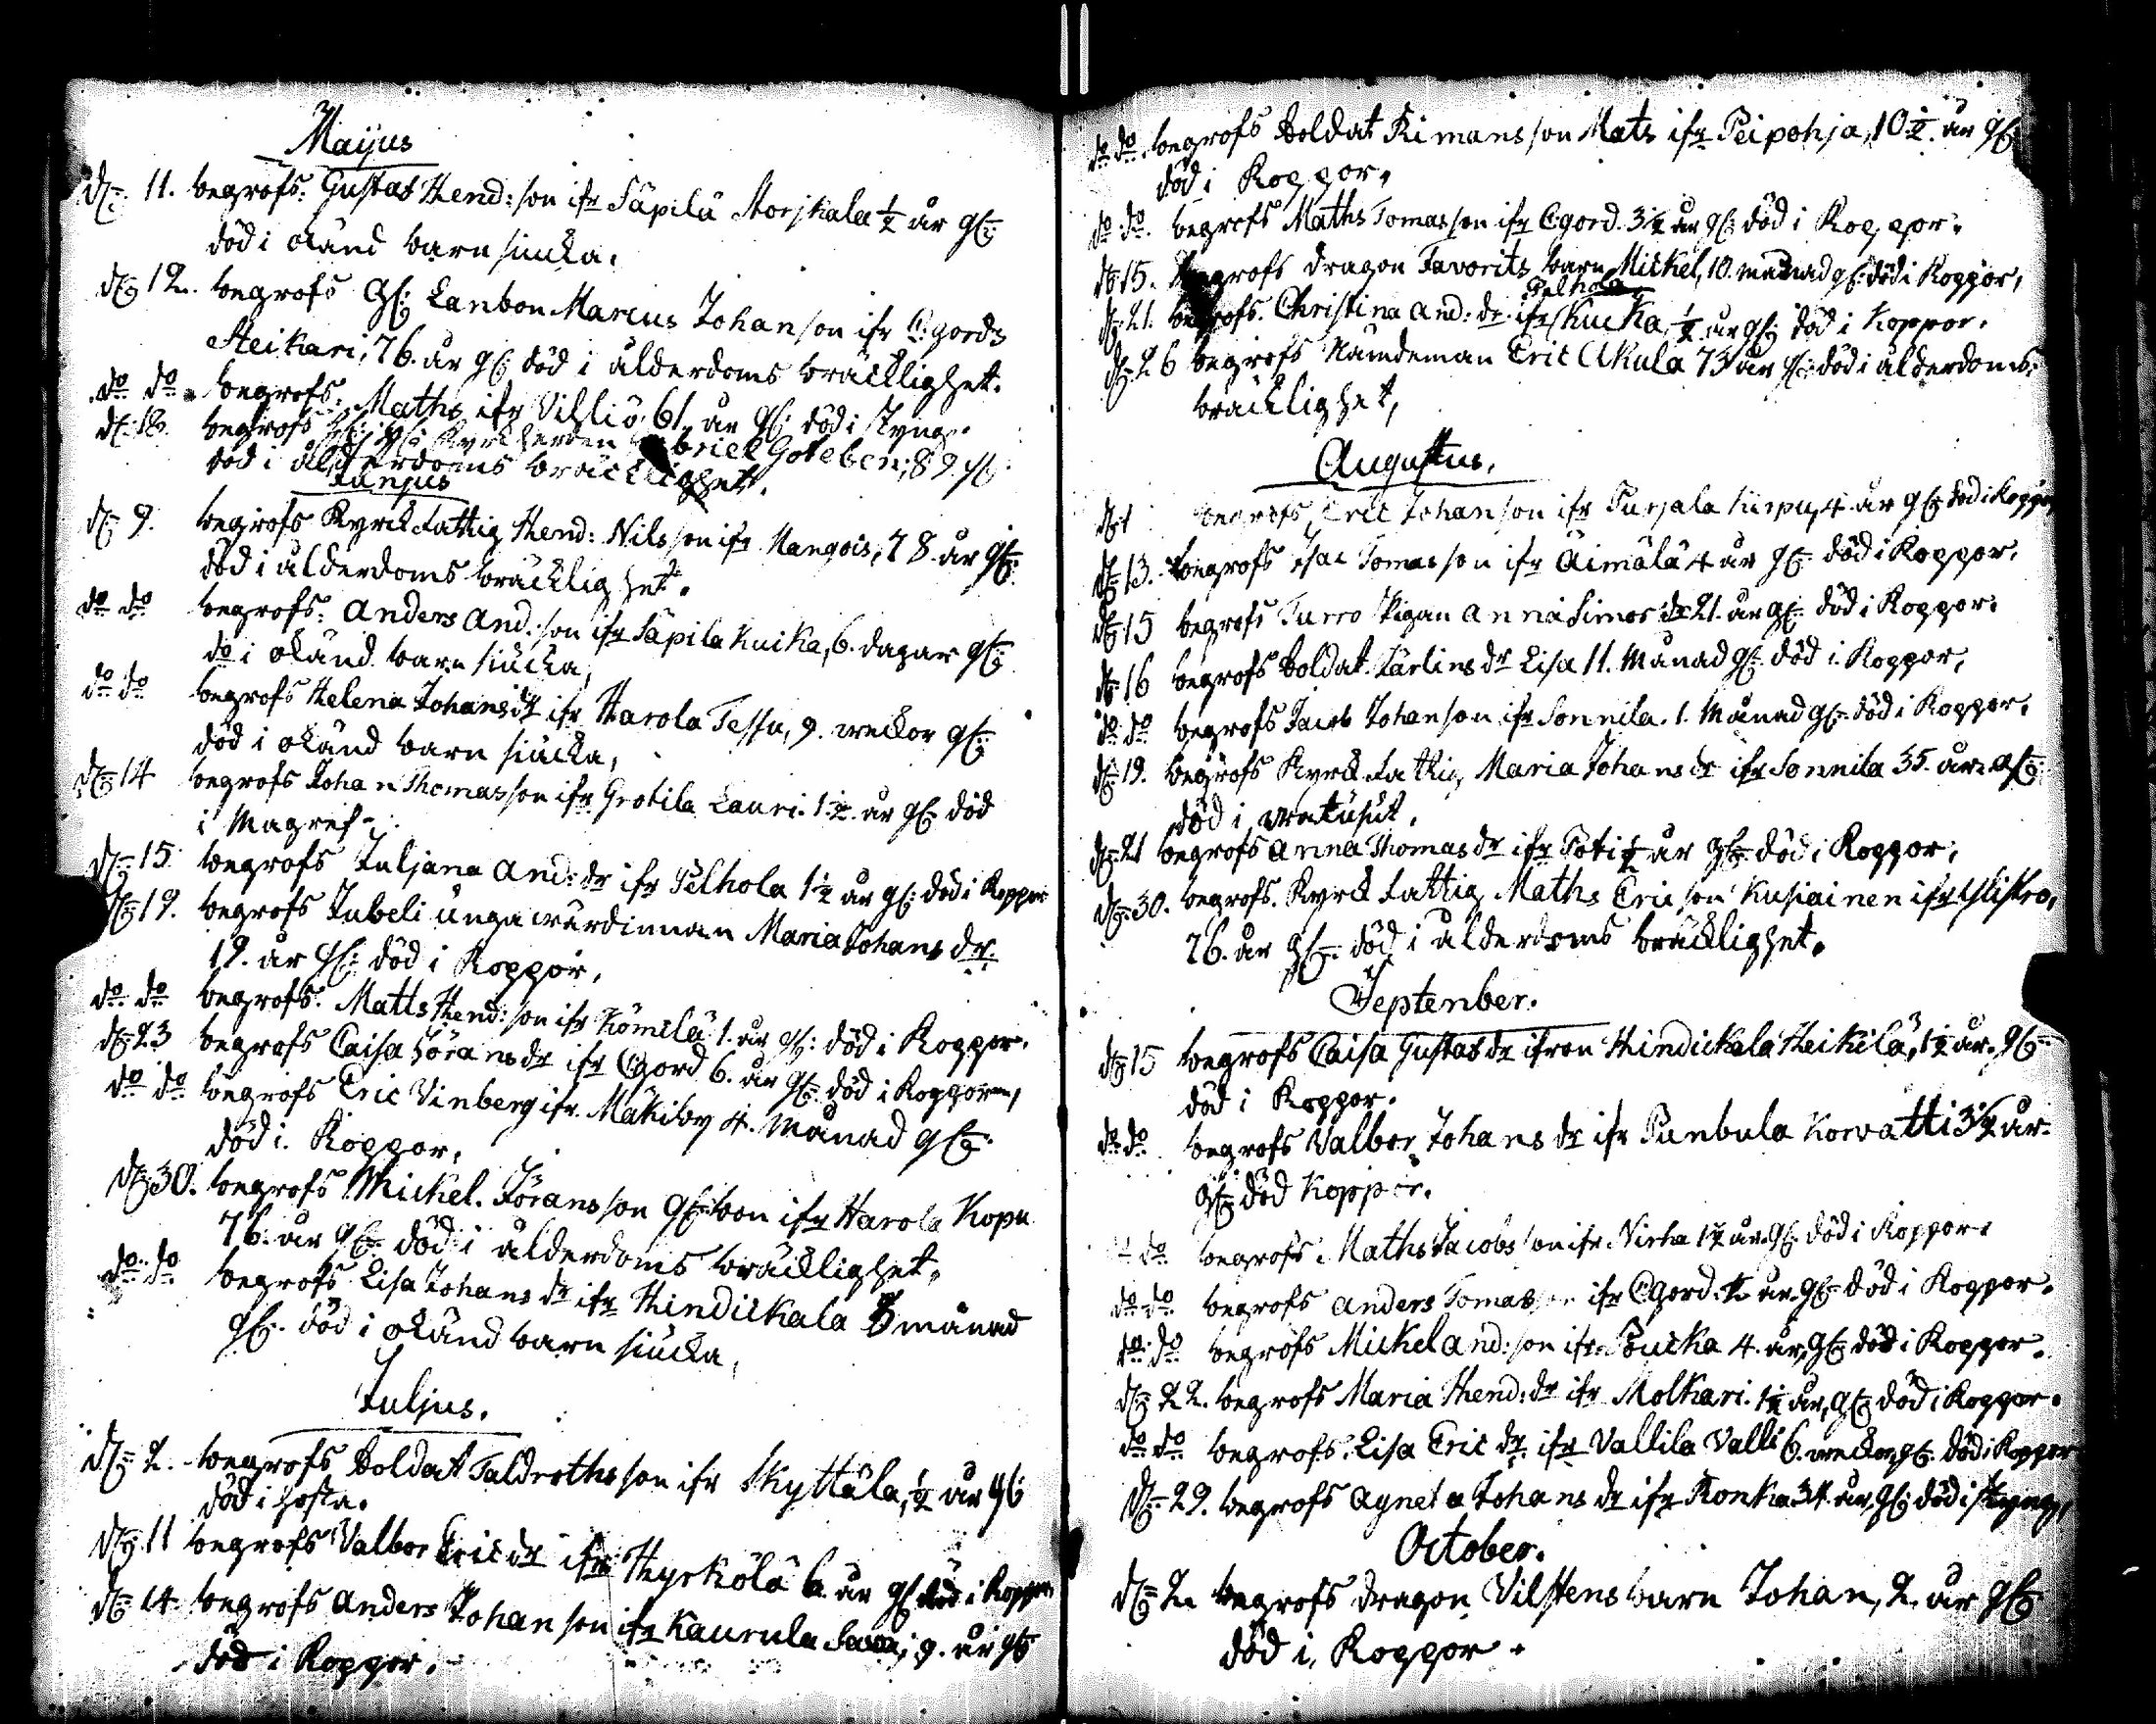 Majus
d. 11. begrofs. Gustaf Hend:son ifr Säpilä Storskala ½ år gl:
död i okänd barn siucka.
d. 12. begrofs gl: Lanbon Marcus Johanson ifr C:gords
Heikari, 76. år gl: död i ålderdoms bräcklighet.
do do. begrofs. Maths ifr Vihliö 61. år gl: död i styng.
d. 18. begrofs Kyrckherden Gabriel Goteben; 89.
död i ålderdoms bräcklighet.
Junjus
d. 9. begrofs Kyrck Fattig Hend: Nilsson ifr Mangois, 78. år gl:
död i ålderdoms bräcklighet.
do do begrofs. Anders And:son ifr Säpilä Kuika, 6. dagar gl:
do i okänd barn siucka,
do do begrofs Helena Johans dr ifr Harola Tessu, 9. weckor gl:
död i okänd barn siucka,
d. 14 begrofs Johan Thomasson ifr Grotila Lauri. 1½. år gl: död
i Magref.
d. 15 begrofs Juljana And: dr ifr Pelhola 1½ år gl: död i Koppor
d. 19. begrofs Jubeli unga wärdinnan Maria Johans dr.
19. år gl: död i Koppor,
do do begrofs. Matts Hend:son ifr Kömilä 1. år gl: död i Koppor.
d. 23 begrofs Caisa Jörans dr ifr C:gord 6. år gl: död i Kopporn,
do do begrofs Eric Vinberg ifr. Mäkiby 4. Månad gl:
död i. Koppor,
d. 30. begrofs Mickel. Jöransson gl: bon ifr Harola Kopu
76. år gl: död i ålderdoms bräcklighet.
do do begrofs Lisa Johans dr ifr Hindickala 3 månad
gl: död i okänd barn siucka,
Juljus.
d. 2. begrofs Soldat Taldroths son ifr Skyttälä, ½ år gl:
död i hosta.
d. 11 begrofs Valbor Eric dr ifr Hyrkölä 6. år gl: död i Koppor,
d. 14 begrofs Anders Johanson ifr Kaurula Savoi, 9. år gl:
död i Koppor.
do do. begrofs Soldat Rimans son Mats ifr Peipohja, 10½. år gl:
död i Koppor.
do do. begrofs Maths Tomasson ifr C:gord. 3½ år gl: död i Koppor.
d. 15. begrofs dragon Favorits barn Mickel, 10. månad gl: död i Koppor,
Pelhola
d. 21. begrofs. Christina And: dr. ifr Kuika, ½ år gl: död i Koppor.
d. 26 begrofs Nämdeman Eric Ukula 73 år gl: död i ålderdoms,
bräcklighet,
Augustus,
d. 1 begrofs Eric Johanson ifr Purjala Kirpu, 4. år gl: död i Koppor,
d. 13. begrofs Isac Tomasson ifr Äimälä 4 år gl: död i Koppor.
d. 15 begrofs Turro Pigan Anna Simos dr 21. år gl: död i Koppor.
d. 16 begrofs Soldat Kärlins dr Lisa 11. Månad gl: död i Koppor,
do do begrofs Jacob Johanson ifr Sonnila. 1. Månad gl: död i Koppor,
d. 19. begrofs Kyrck Fattig Maria Johans dr ifr Sonnila 35. år. gl:
död i
d. 21 begrofs Anna Thomas dr ifr Toti ½ år gl: död i Koppor,
d. 30. begrofs. Kyrck Fattig Maths Ericson Kusiainen ifr Ylistro,
76. år gl: död i ålderdoms bräcklighet.
September.
d. 15 begrofs Caisa Gustaf dr ifron Hindickala Heikilä, 1½ år. gl:
död i Koppor.
do do begrofs Valbor Johans dr ifr Punbula Korvatti 3½ år.
gl: död Koppor.
do begrofs Maths Jacobs son ifr Nirha 1½ år. gl: död i Koppor.
do do begrofs Anders Tomasson ifr C:gord. ½ år. gl: död i Koppor.
do do begrofs Mickel And:son ifr Poucka 4. år, gl: död i Koppor.
d. 22. begrofs Maria Hend: dr ifr Molkari. 1½ år, gl: död i Koppor.
do do begrofs. Lisa Eric dr. ifr Vallila Valli 6. weckor, gl: död i Koppor
d. 29. begrofs Agneta Johans dr ifr Ronka 34. år, gl: död i styng,
October.
d. 2. begrofs dragon Vilstens barn Johan, 2. år gl:
död i, Koppor.